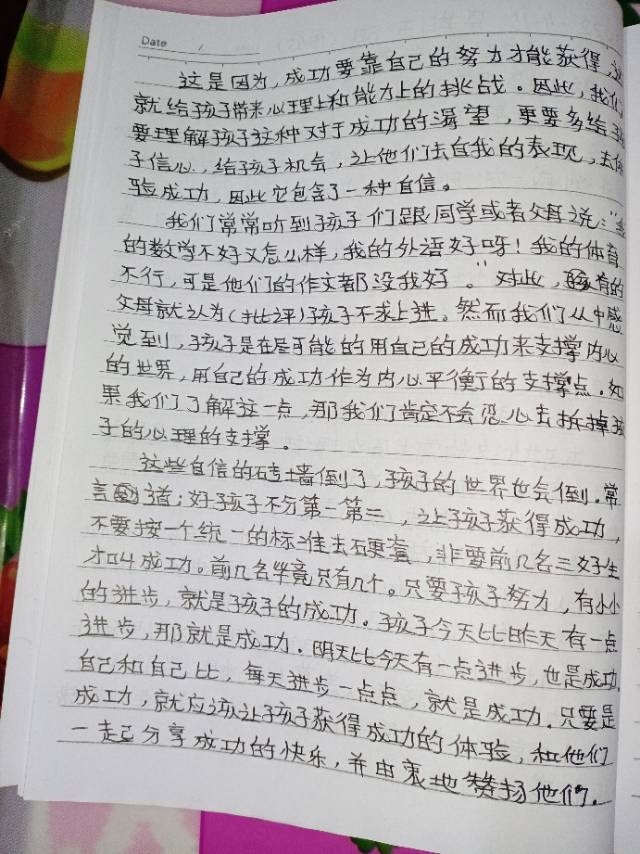 Date /
这是因为,成功要靠自己的努力才能获得,这
就给孩子带来心理上和能力上的挑战。因此,我们
要理解孩子这种对于成功的渴望,更要多给孩
子信心,给孩子机会,让他们去自我的表现,去体
验成功,因此它包含了一种自信。
我们常常听到孩子们跟同学或者父母说:“
的数学不好又怎么样,我的外语好呀!我的体育
不行,可是他们的作文都没我好。”对此,有的
父母就认为(批评)孩子不求上进。然而我们从中感
觉到,孩子是在尽可能的用自己的成功来支撑内心
的世界,用自己的成功作为内心平衡的支撑点。如
果我们了解这一点,那我们肯定不会忍心去拆掉孩
子的心理的支撑。
这些自信的砖墙倒了,孩子的世界也会倒。常
言道:好孩子不分第一第二,让孩子获得成功,
不要按一个统一的标准去硬套,非要前几名三好生
才叫成功。前几名毕竟只有几个。只要孩子努力,有小小
的进步,就是孩子的成功。孩子今天比昨天有一点
进步,那就是成功。明天比今天有一点进步,也是成功。
自己和自己比,每天进步一点点,就是成功。只要是
成功,就应该让孩子获得成功的体验,和他们
一起分享成功的快乐,并由衷地赞扬他们。